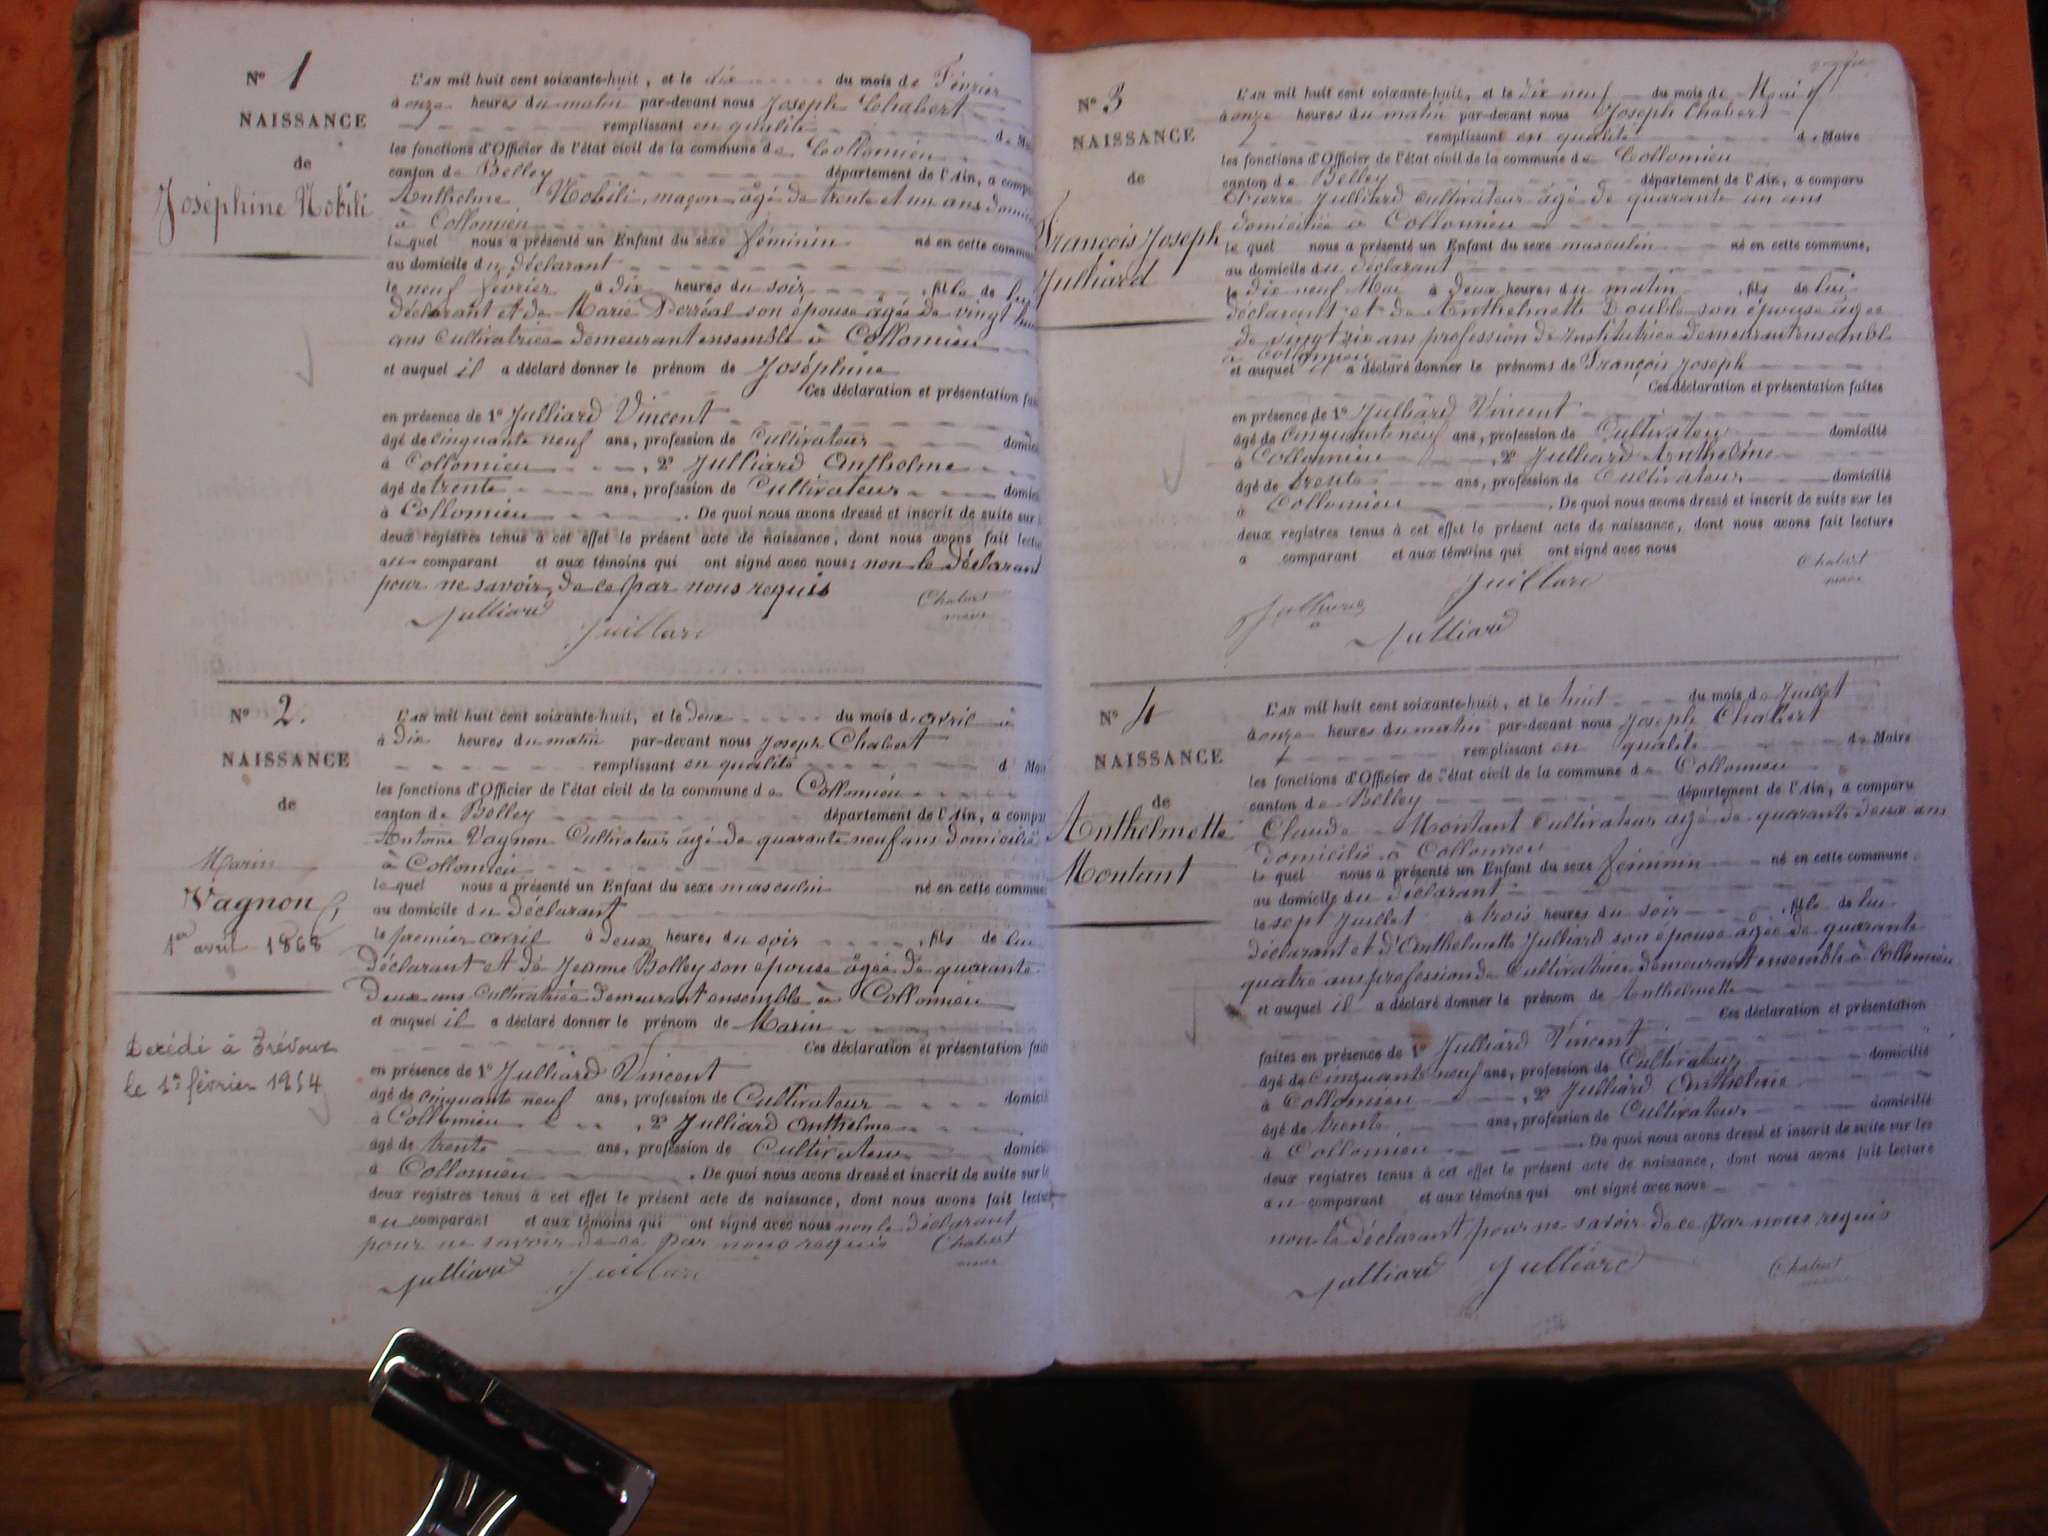 N° 1
NAISSANCE
de
Joséphine Nobili
L'AN mil huit cent soixante-huit, et le dix du mois de Février
à onze heures du matin par-devant nous Joseph Chabert
remplissant en qualité de
les fonctions d'Officier de l'état civil de la commune de Collomieu
canton de Belley département de l'Ain, a
Anthelme Nobili, maçon âgé de trente et un ans
à Collomieu
le quel nous a présenté un Enfant du sexe féminin né en cette
au domicile du déclarant
le neuf février à dix heures du soir, fille de lui
déclarant et de Marie Perréal son épouse âgée de vingt
ans Cultivatrice demeurant ensemble à Collomieu
et auquel il a déclaré donner le prénom de Joséphine
Ces déclaration et présentation
en présence de 1° Julliard Vincent
âgé de cinquante neuf ans, profession de Cultivateur
à Collomieu, 2° Julliard Anthelme
âgé de trente ans, profession de Cultivateur
à Collomieu. De quoi nous avons dressé et inscrit de suite sur
deux registres tenus à cet effet le présent acte de naissance, dont nous avons fait
au comparant et aux témoins qui ont signé avec nous; non le déclarant
pour ne savoir, de ce par nous requis
Chabert
maire
Julliard Juillard
N° 2.
NAISSANCE
de
Marin
Vagnon
1er avril 1868
Décédé à Trévoux
le 1er février 1954
L'AN mil huit cent soixante-huit, et le deux du mois d'avril à
à dix heures du matin par-devant nous Joseph Chabert
remplissant en qualité d
les fonctions d'Officier de l'état civil de la commune de Collomieu
canton de Belley département de l'Ain, a
Antoine Vagnon Cultivateur âgé de quarante neuf ans domicilié
à Collomieu
le quel nous a présenté un Enfant du sexe masculin né en cette
au domicile du déclarant
le premier avril à deux heures du soir, fils de lui
déclarant et de Jeanne Bolley son épouse âgée de quarante
deux ans cultivatrice demeurant ensemble à Collomieu
et auquel il a déclaré donner le prénom de Marin
Ces déclaration et présentation
en présence de 1° Julliard Vincent
âgé de cinquante neuf ans, profession de Cultivateur
à Collomieu, 2° Julliard Anthelme
âgé de trente ans, profession de Cultivateur
à Collomieu. De quoi nous avons dressé et inscrit de suite sur
deux registres tenus à cet effet le présent acte de naissance, dont nous avons fait
au comparant et aux témoins qui ont signé avec nous non le déclarant
pour ne savoir de ce par nous requis Chabert
maire
Julliard Juillard
N° 3
NAISSANCE
de
François Joseph
Julliard
L'AN mil huit cent soixante-huit, et le dix neuf du mois de Mai
à onze heures du matin par-devant nous Joseph Chabert
remplissant en qualité de Maire
les fonctions d'Officier de l'état civil de la commune de Collomieu
canton de Belley département de l'Ain, a comparu
Pierre Julliard cultivateur âgé de quarante un ans
domicilié à Collomieu
le quel nous a présenté un Enfant du sexe masculin né en cette commune,
au domicile du déclarant
le dix neuf Mai à deux heures du matin, fils de lui
déclarant et de Anthelmette Double son épouse âgée
de vingt six ans profession de Institutrice demeurant ensemble
à Collomieu
et auquel il a déclaré donner le prénoms de François Joseph
Ces déclaration et présentation faites
en présence de 1° Julliard Vincent
âgé de Cinquante neuf ans, profession de Cultivateur domicilié
à Collomieu, 2° Julliard Anthelme
âgé de trente ans, profession de Cultivateur domicilié
à Collomieu. De quoi nous avons dressé et inscrit de suite sur les
deux registres tenus à cet effet le présent acte de naissance, dont nous avons fait lecture
a comparant et aux témoins qui ont signé avec nous
Chabert
maire
Juillard
Julliard
N° 4
NAISSANCE
de
Anthelmette
Montant
L'AN mil huit cent soixante-huit, et le huit du mois de Juillet
à onze heures du matin par-devant nous Joseph Chabert
remplissant en qualité de Maire
les fonctions d'Officier de l'état civil de la commune de Collomieu
canton de Belley département de l'Ain, a comparu
Claude Montant Cultivateur âgé de quarante deux ans
domicilié à Collomieu
le quel nous a présenté un Enfant du sexe féminin né en cette commune
au domicile du déclarant
le sept Juillet à trois heures du soir, fille de lui
déclarant et d'Anthelmette Julliard son épouse âgée de quarante
quatre ans profession de Cultivatrice demeurant ensemble à Collomieu
et auquel il a déclaré donner le prénom de Anthelmette
Ces déclaration et présentation
faites en présence de 1° Julliard Vincent
âgé de cinquante neuf ans, profession de Cultivateur domicilié
à Collomieu, 2° Julliard Anthelme
âgé de trente ans, profession de Cultivateur domicilié
à Collomieu. De quoi nous avons dressé et inscrit de suite sur les
deux registres tenus à cet effet le présent acte de naissance, dont nous avons fait lecture
au comparant et aux témoins qui ont signé avec nous
non le déclarant pour ne savoir de ce par nous requis
Julliard Julliard Chabert
maire